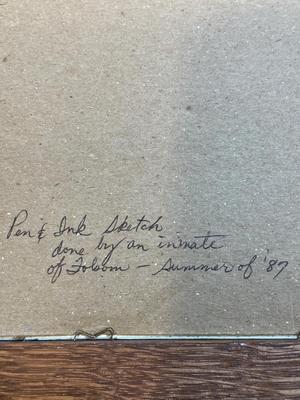 Pen & Ink Sketch
done by an inmate
of Folsom - Summer of '87